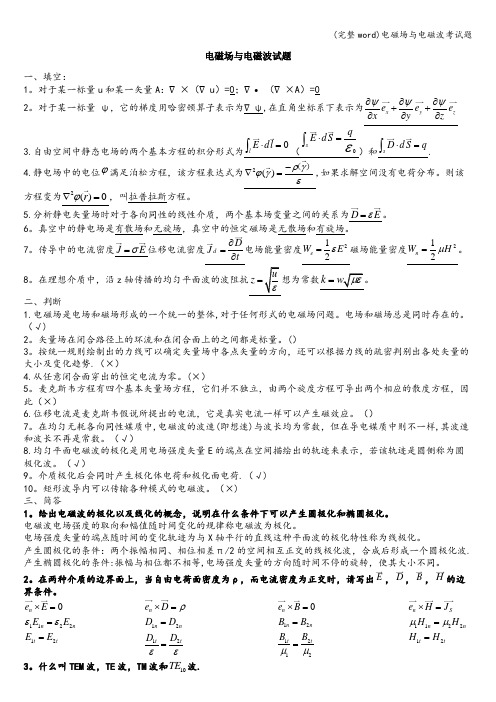 (完整word)电磁场与电磁波考试题
电磁场与电磁波试题
一、填空:
1。对于某一标量u和某一矢量A:∇ × (∇ u)=0;∇• (∇ ×A)=0
2。对于某一标量 ψ, 它的梯度用哈密顿算子表示为∇ ψ,在直角坐标系下表示为 ∂ψ/∂x e_x + ∂ψ/∂y e_y + ∂ψ/∂z e_z
3.自由空间中静态电场的两个基本方程的积分形式为 ∫_l E·dl = 0 (∫_s E·dS = q/ε_0)和∫_s D·dS = q.
4.静电场中的电位φ满足泊松方程, 该方程表达式为 ∇²φ(γ) = −ρ(γ)/ε ,如果求解空间没有电荷分布。则该
方程变为∇²φ(r) = 0, 叫拉普拉斯方程。
5.分析静电矢量场时对于各向同性的线性介质, 两个基本场变量之间的关系为D = εE。
6。真空中的静电场是有散场和无旋场, 真空中的恒定磁场是无散场和有旋场。
7。传导中的电流密度J = σE位移电流密度J_d = ∂D/∂t 电场能量密度W_e = 1/2 εE² 磁场能量密度W_n = 1/2 μH²。
8。在理想介质中, 沿z轴传播的均匀平面波的波阻抗z = √(u/ε) 想为常数k = w√με。
二、判断
1.电磁场是电场和磁场形成的一个统一的整体,对于任何形式的电磁场问题。电场和磁场总是同时存在的。
(√)
2。矢量场在闭合路径上的环流和在闭合面上的之间都是标量。()
3。按统一规则绘制出的力线可以确定矢量场中各点矢量的方向, 还可以根据力线的疏密判别出各处矢量的
大小及变化趋势.(×)
4.从任意闭合面穿出的恒定电流为零。(×)
5。麦克斯韦方程有四个基本矢量场方程, 它们并不独立, 由两个旋度方程可导出两个相应的散度方程, 因
此(×)
6.位移电流是麦克斯韦假说所提出的电流, 它是真实电流一样可以产生磁效应。()
7。在均匀无耗各向同性媒质中,电磁波的波速(即想速)与波长均为常数, 但在导电媒质中则不一样,其波速
和波长不再是常数。(√)
8.均匀平面电磁波的极化是用电场强度矢量E的端点在空间描绘出的轨迹来表示, 若该轨迹是圆侧称为圆
极化波。(√)
9。介质极化后会同时产生极化体电荷和极化面电荷.(√)
10。矩形波导内可以传输各种模式的电磁波。(×)
三、简答
1。给出电磁波的极化以及线化的概念, 说明在什么条件下可以产生圆极化和椭圆极化。
电磁波电场强度的取向和幅值随时间变化的规律称电磁波为极化。
电场强度矢量的端点随时间的变化轨迹为与X轴平行的直线这种平面波的极化特性称为线极化。
产生圆极化的条件: 两个振幅相同、相位相差π/2的空间相互正交的线极化波, 合成后形成一个圆极化波.
产生椭圆极化的条件:振幅与相位都不相等,电场强度矢量的方向随时间不停的旋转, 使其大小不同。
2。在两种介质的边界面上, 当自由电荷面密度为ρ, 而电流密度为正交时, 请写出E, D, B, H的边
界条件。
e_n × E = 0 e_n × D = ρ e_n × B = 0 e_n × H = J_S
ε_1E_1n = ε_2E_2n D_1n = D_2n B_1n = B_2n μ_1H_1n = μ_2H_2n
E_1t = E_2t D_1t/ε = D_2t/ε B_1t/μ_1 = B_2t/μ_2 H_1t = H_2t
3。什么叫TEM波, TE波, TM波和TE_10波.